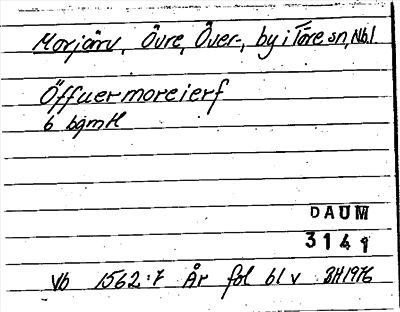 Morjärv, Övre, Över-, by i Töre sn, Nb.l
Öffuermoreierf
6 bgmH
DAUM
3141
Vb 1562:7 År fol bl v BH1976